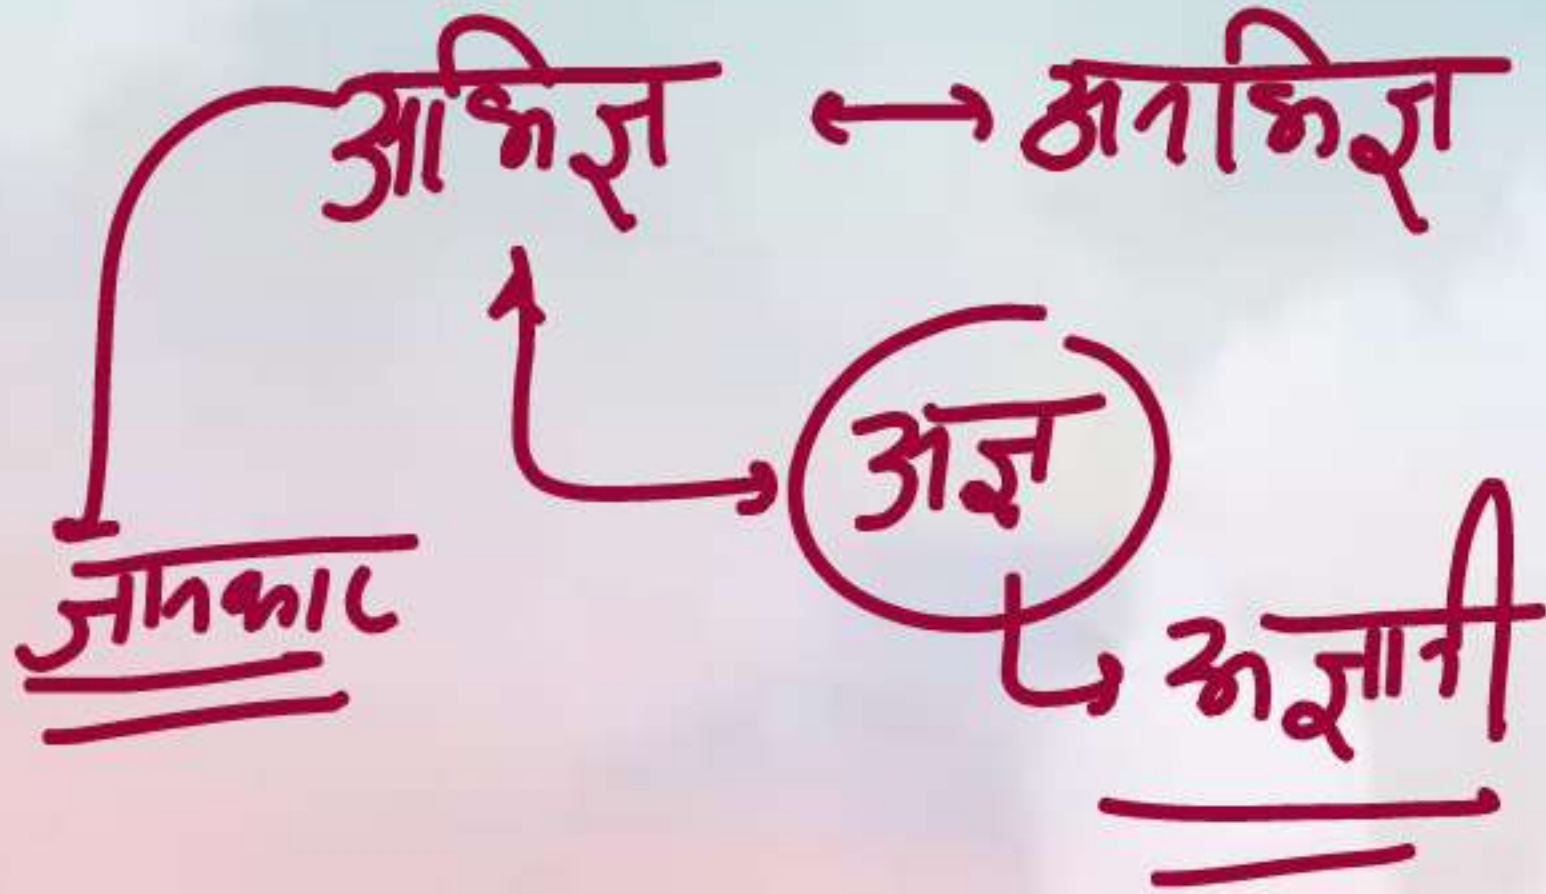 अभिज्ञ ↔ अनभिज्ञ
अज्ञ
जानकार
अज्ञानी